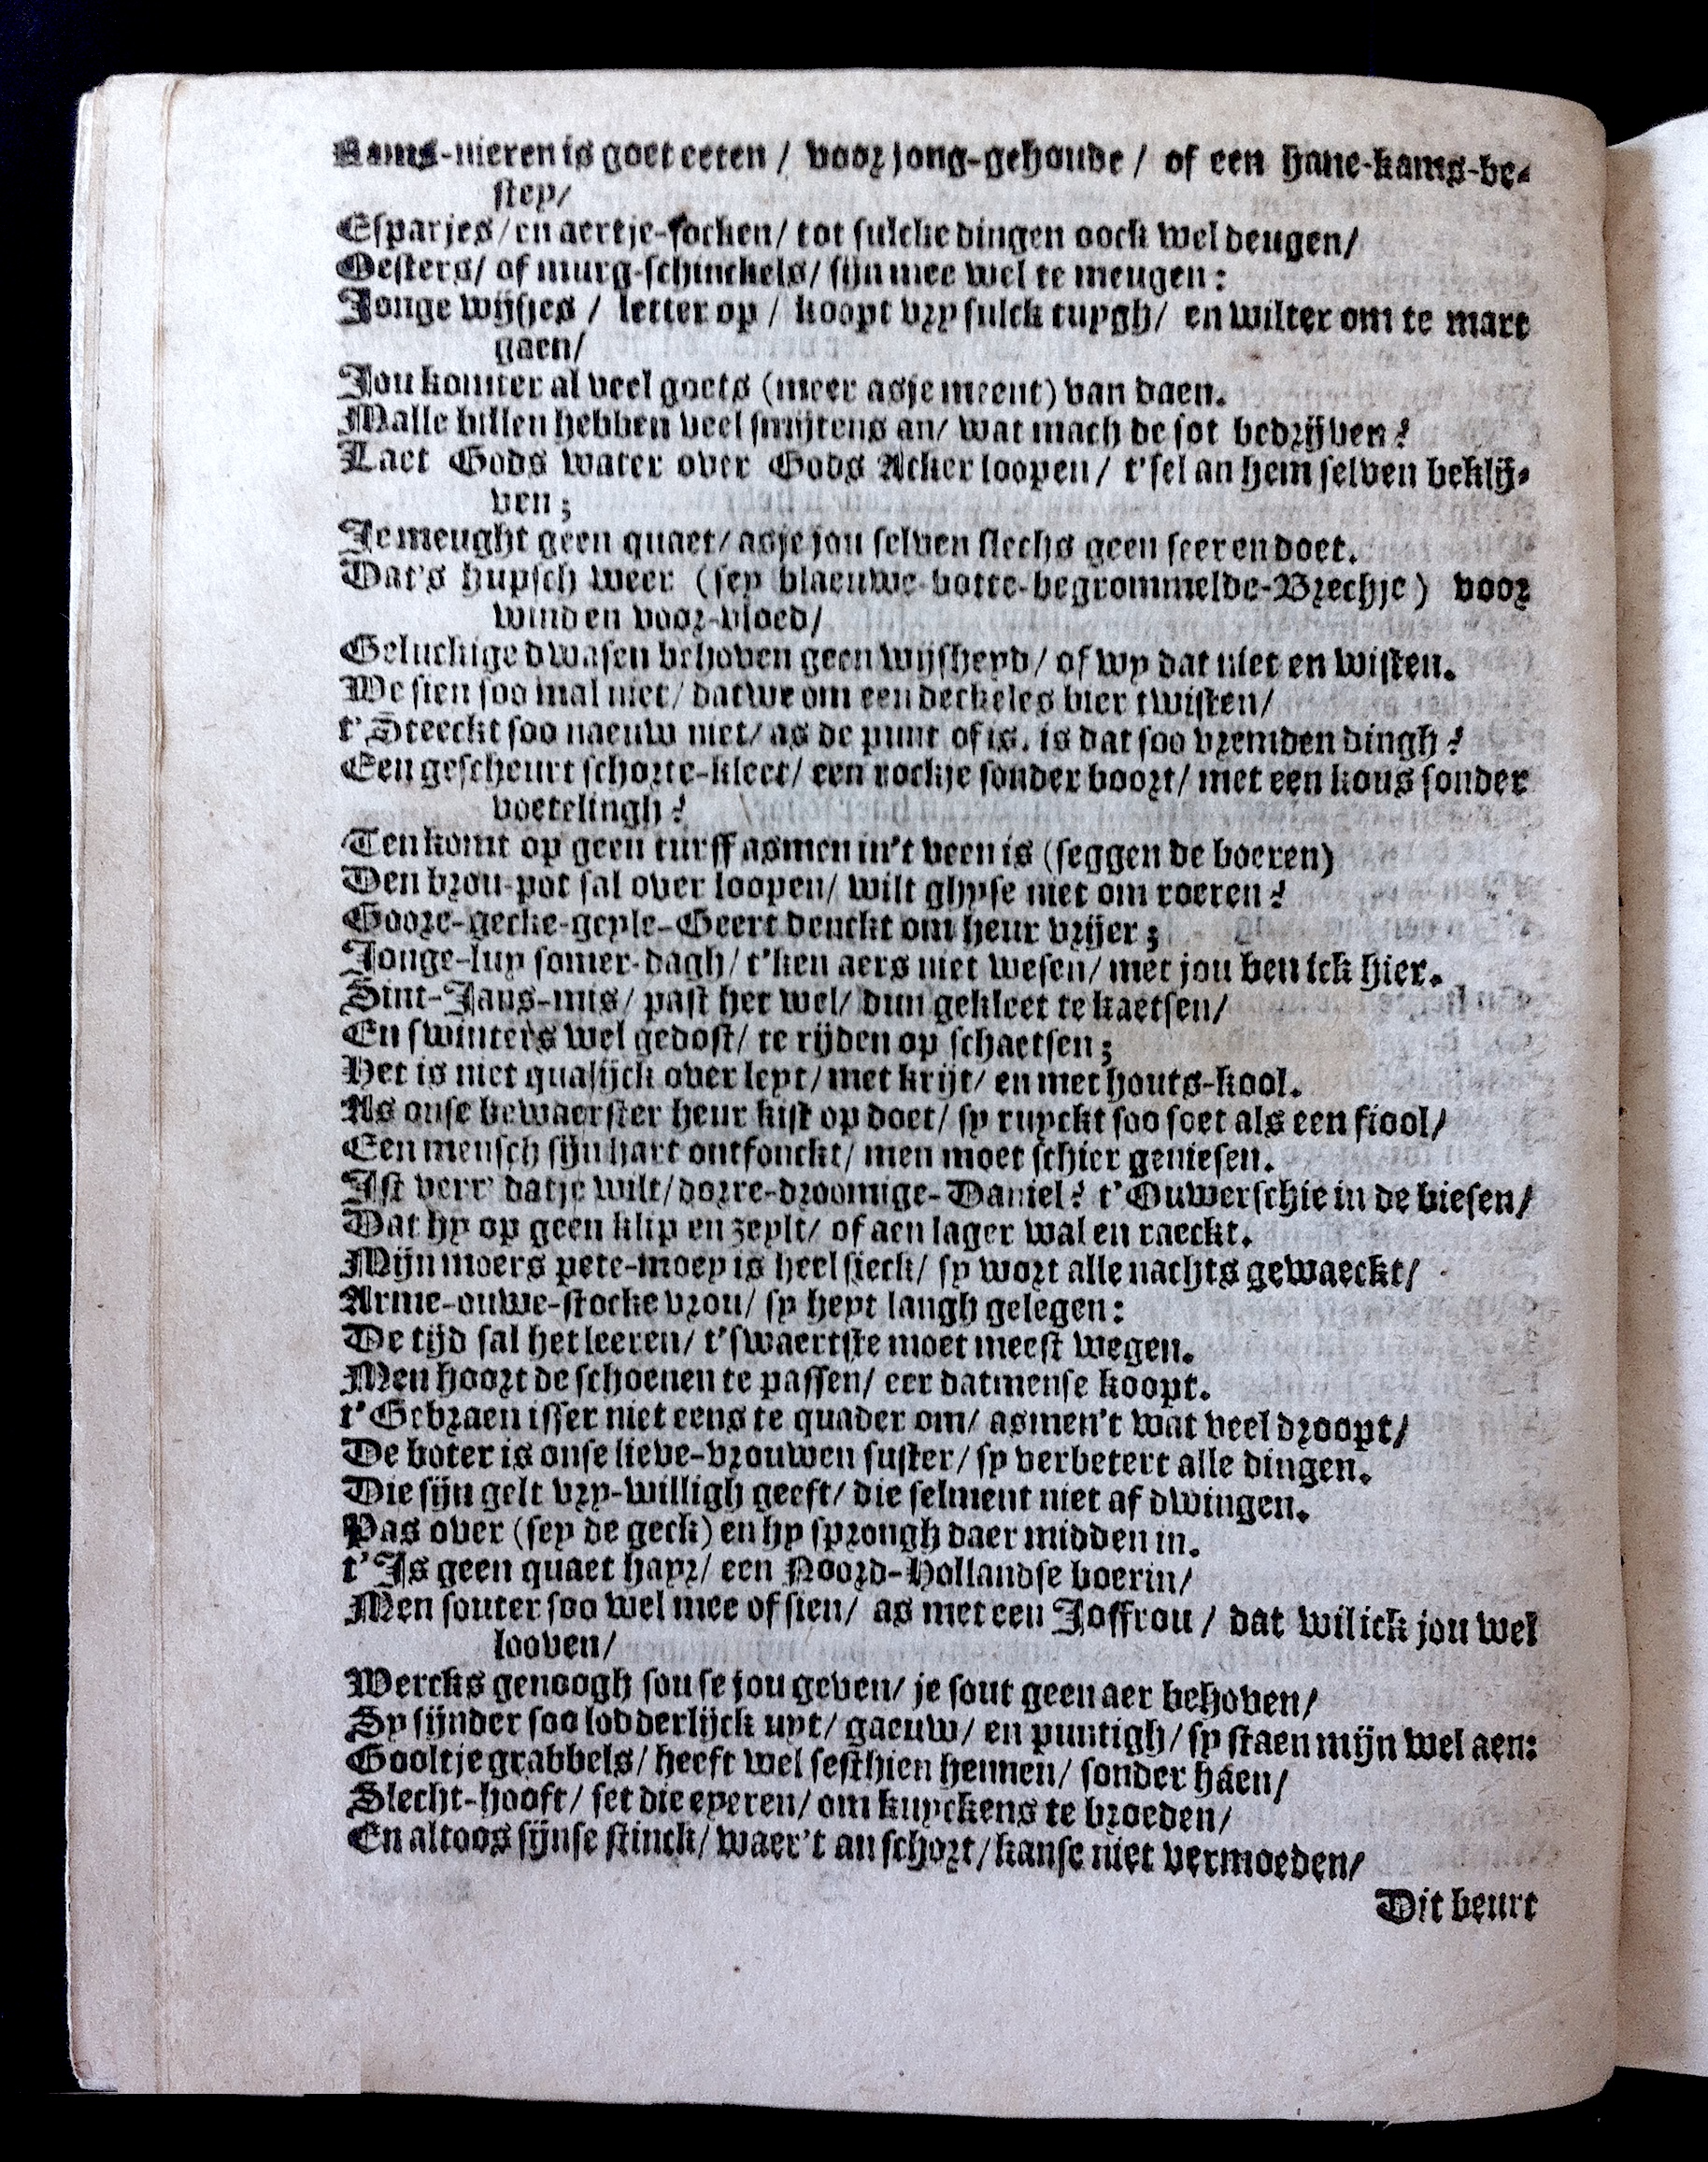 Rams-nieren is goet eeten / voor jong-gehoude / of een hane-kams-be-
stey/
Esparjes/ en aertje-socken/ tot sulcke dingen oock wel deugen/
Oesters/ of murg-schinckels/ sijn mee wel te meugen:
Jonge wijfjes / letter op / koopt vry sulck tuygh/ en wilter om te mart
gaen/
Jou komter al veel goets (meer asje meent) van daen.
Malle billen hebben veel smijtens an/ wat mach de sot bedrijven?
Laet Gods water over Gods Acker loopen/ t'sel an hem selven beklij-
ven;
Je meught geen quaet/ asje jou selven slechs geen seer en doet.
Dat's hupsch weer (sey blaeuwe-botte-begrommelde-Brechje) voor
wind en voor-vloed/
Geluckige dwasen behoven geen wijsheyd/ of wy dat niet en wisten.
We sien soo mal niet/ datwe om een deckeles bier twisten/
t'Steeckt soo naeuw niet/ as de punt of is. is dat soo vremden dingh?
Een gescheurt schorte-kleet/ een rockje sonder boort/ met een kous sonder
voetelingh?
Ten komt op geen turff asmen in't veen is (seggen de boeren)
Den brou-pot sal over loopen/ wilt ghyse niet om roeren?
Goore-gecke-geyle-Geert denckt om heur vrijer;
Jonge-luy somer-dagh/ t'ken aers niet wesen/ met jou ben ick hier.
Sint-Jans-mis/ past het wel/ dun gekleet te kaetsen/
En swinters wel gedost/ te rijden op schaetsen;
Het is niet qualijck over leyt/ met krijt/ en met houts-kool.
As onse bewaerster heur kist op doet/ sy ruyckt soo soet als een fiool/
Een mensch sijn hart ontfonckt/ men moet schier geniesen.
Ist verr' datje wilt/ dorre-droomige-Daniel? t'Ouwerschie in de biesen/
Dat hy op geen klip en zeylt/ of aen lager wal en raeckt.
Mijn moers pete-moey is heel sieck/ sy wort alle nachts gewaeckt/
Arme-ouwe-stocke vrou/ sy heyt langh gelegen:
De tijd sal het leeren/ t'swaertste moet meest wegen.
Men hoort de schoenen te passen/ eer datmense koopt.
t'Gebraen isser niet eens te quader om/ asmen't wat veel droopt/
De boter is onse lieve-vrouwen suster/ sy verbetert alle dingen.
Die sijn gelt vry-willigh geeft/ die selment niet af dwingen.
Pas over (sey de geck) en hy sprongh daer midden in.
t'Is geen quaet hayr/ een Noord-Hollandse boerin/
Men souter soo wel mee of sien/ as met een Joffrou / dat wil ick jou wel
looven/
Wercks genoogh sou se jou geven/ je sout geen aer behoven/
Sy sijnder soo lodderlijck uyt/ gaeuw/ en puntigh/ sy staen mijn wel aen:
Gooltje grabbels/ heeft wel sesthien hennen/ sonder haen/
Slecht-hooft/ set die eyeren/ om kuyckens te broeden/
En altoos sijnse stinck/ waer't an schort/ kanse niet vermoeden/
Dit beurt